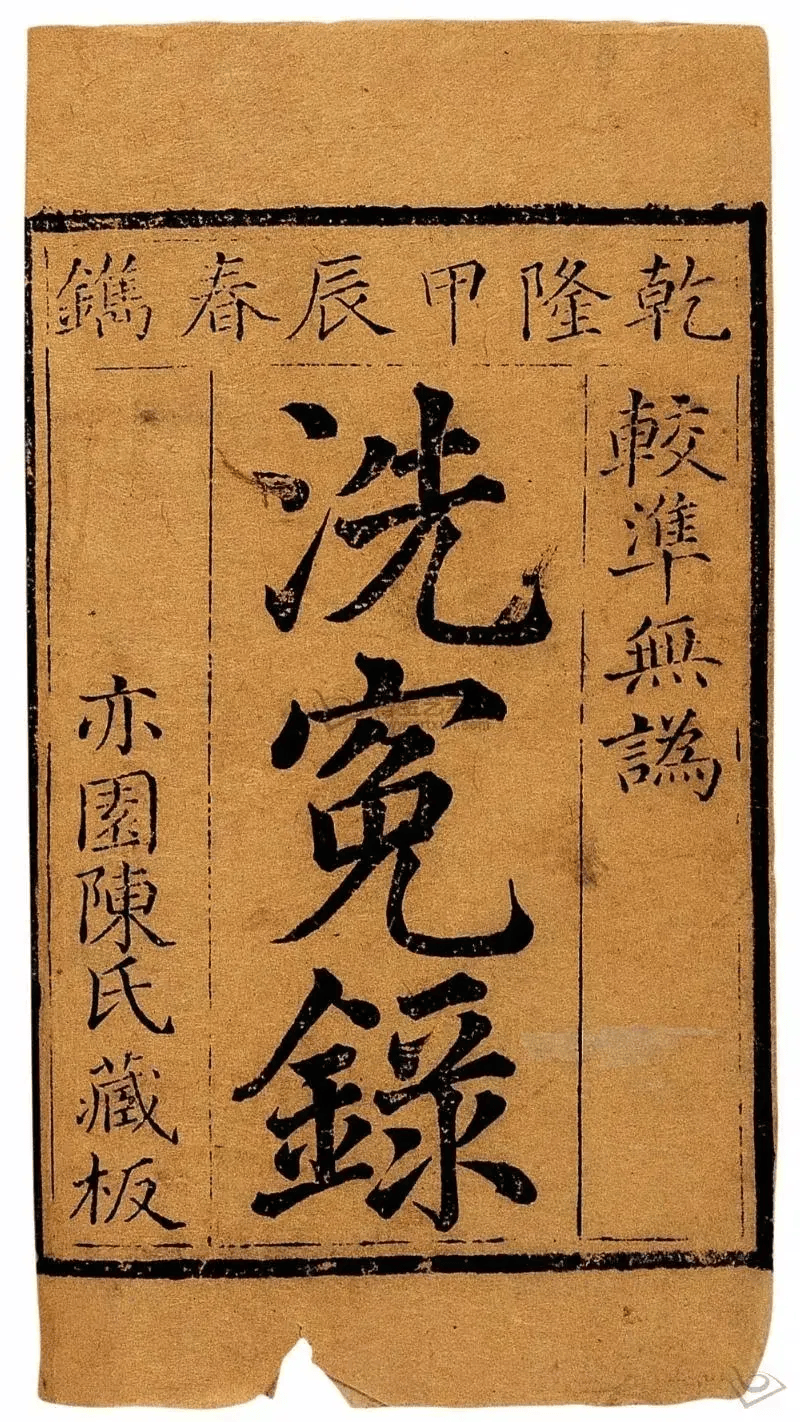 乾隆甲辰春鐫
較準無譌
洗寃錄
亦園陳氏藏板